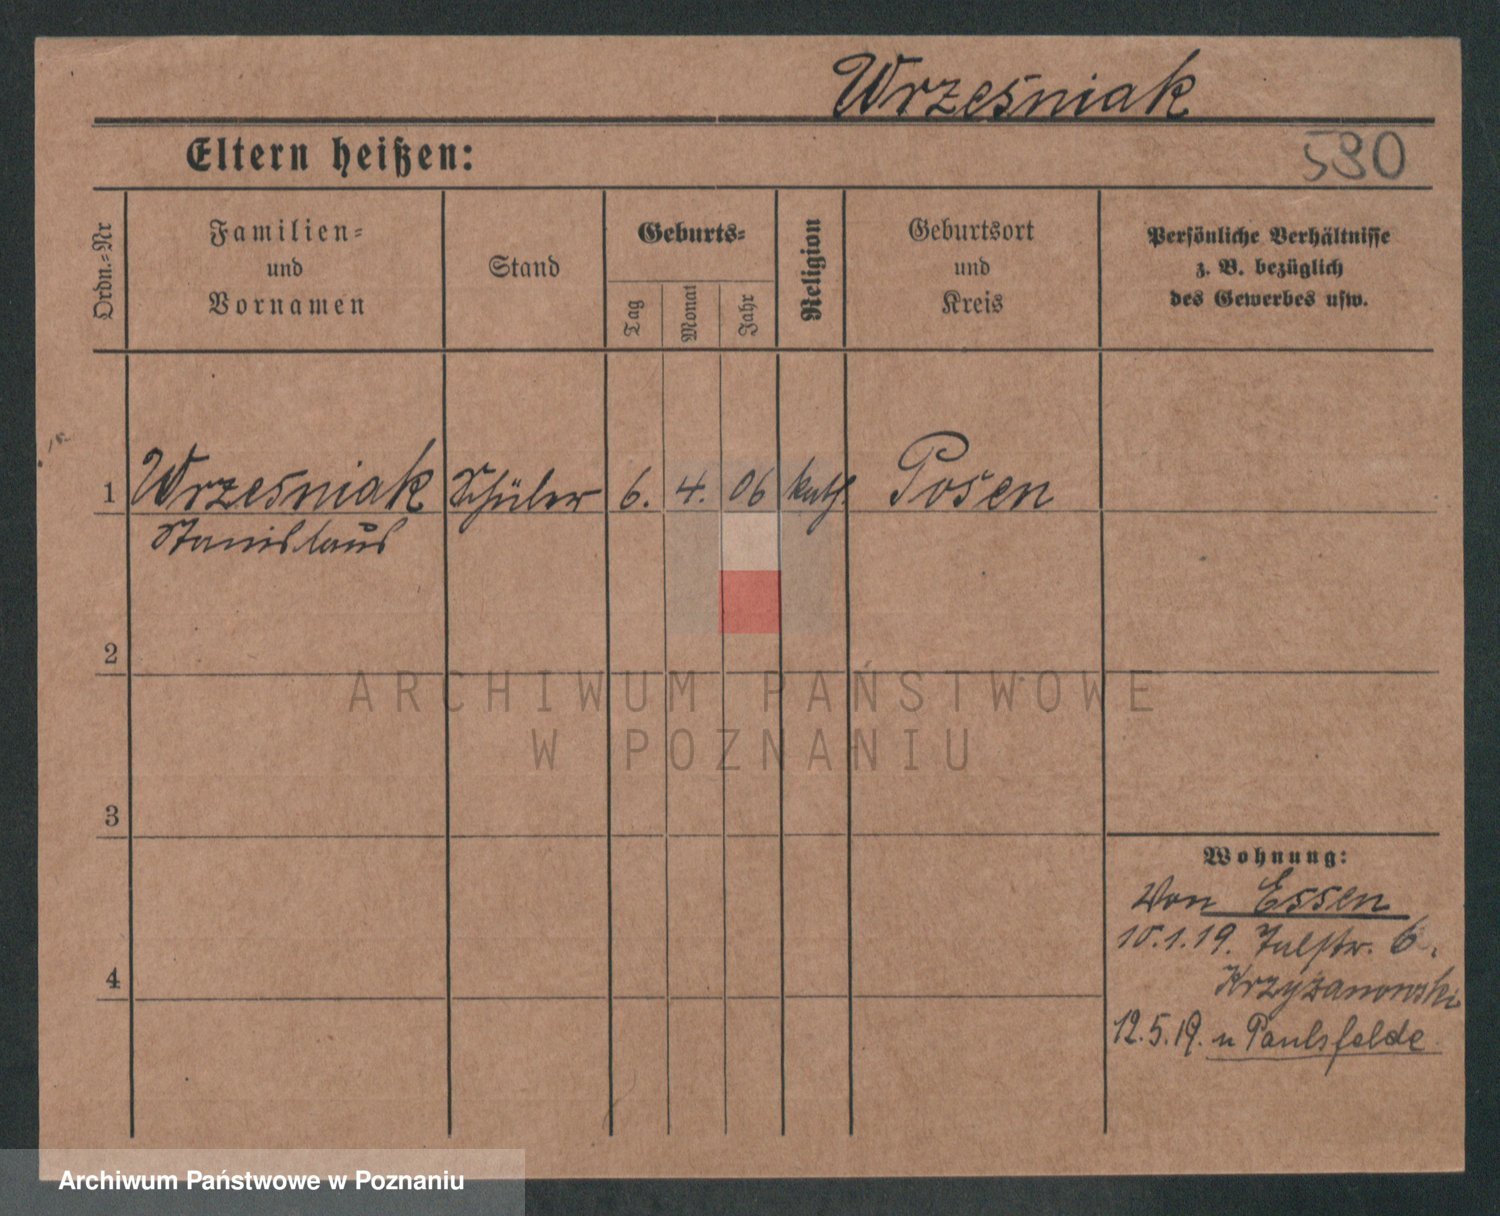 Wrześniak
Eltern heißen:
580
Ordn.=Nr
Familien=
und
Vornamen
Stand
Geburts=
Tag
Monat
Jahr
Religion
Geburtsort
und
Kreis
Persönliche Verhältnisse
z. B. bezüglich
des Gewerbes usw.
1 Wrześniak Schüler 6. 4. 06 kath. Posen
Stanislaus
2
ARCHIWUM PAŃSTWOWE
W POZNANIU
3
4
Wohnung:
Von Essen
10.1.19. Talstr. 6.
Krzyżanowski
12.5.19. n Paulsfelde
Archiwum Państwowe w Poznaniu